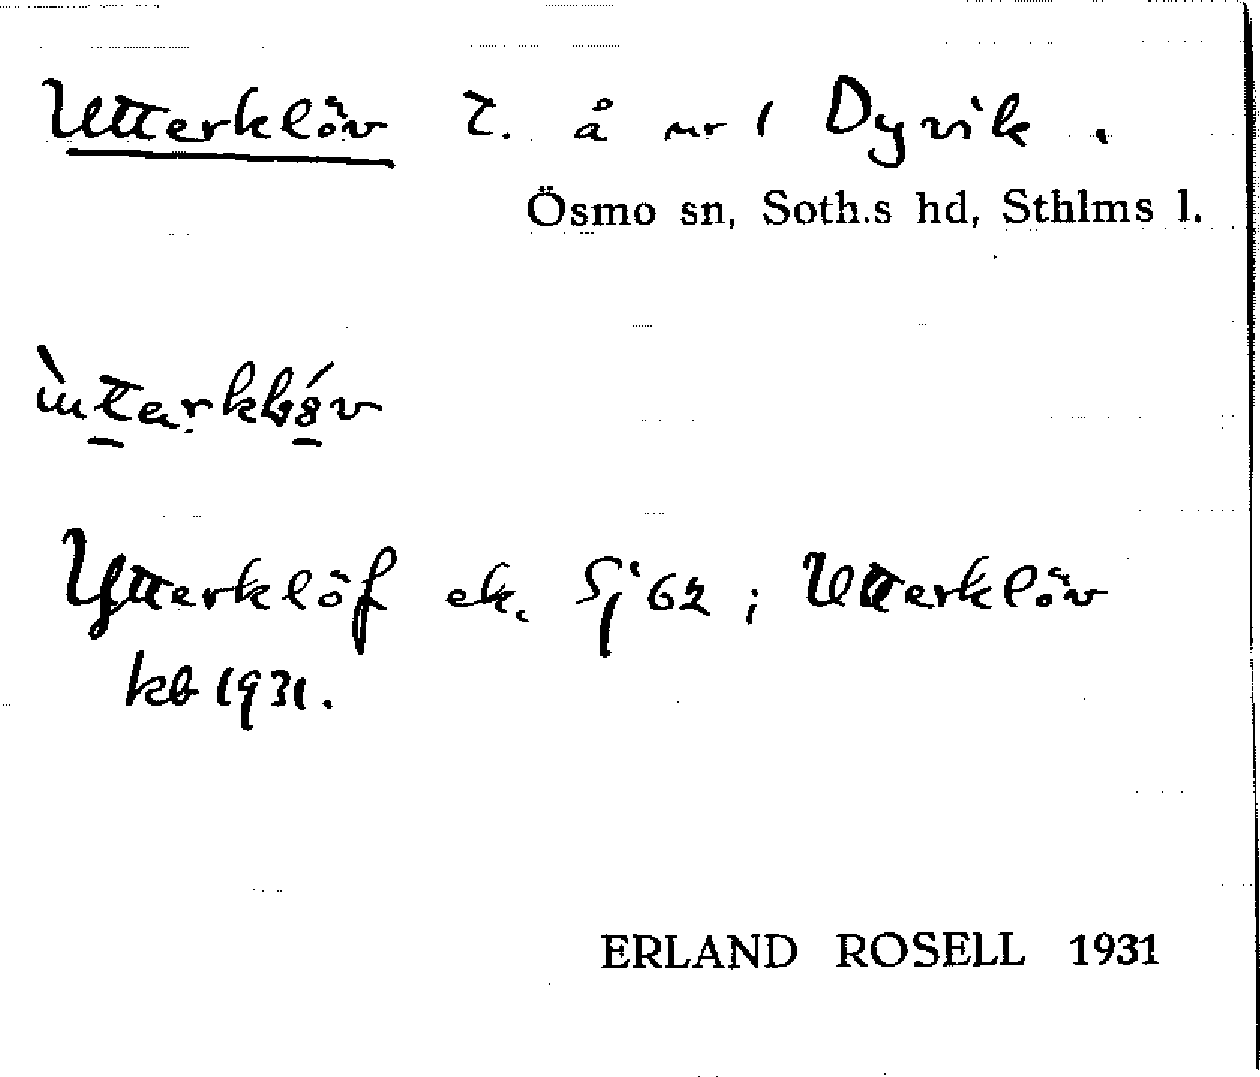 Utterklöv t. å nr 1 Dyvik.
Ösmo sn, Soth.s hd, Sthlms l.
Ytterklöf ek. Gj 62; Utterklöv
kb 1931.
ERLAND ROSELL 1931